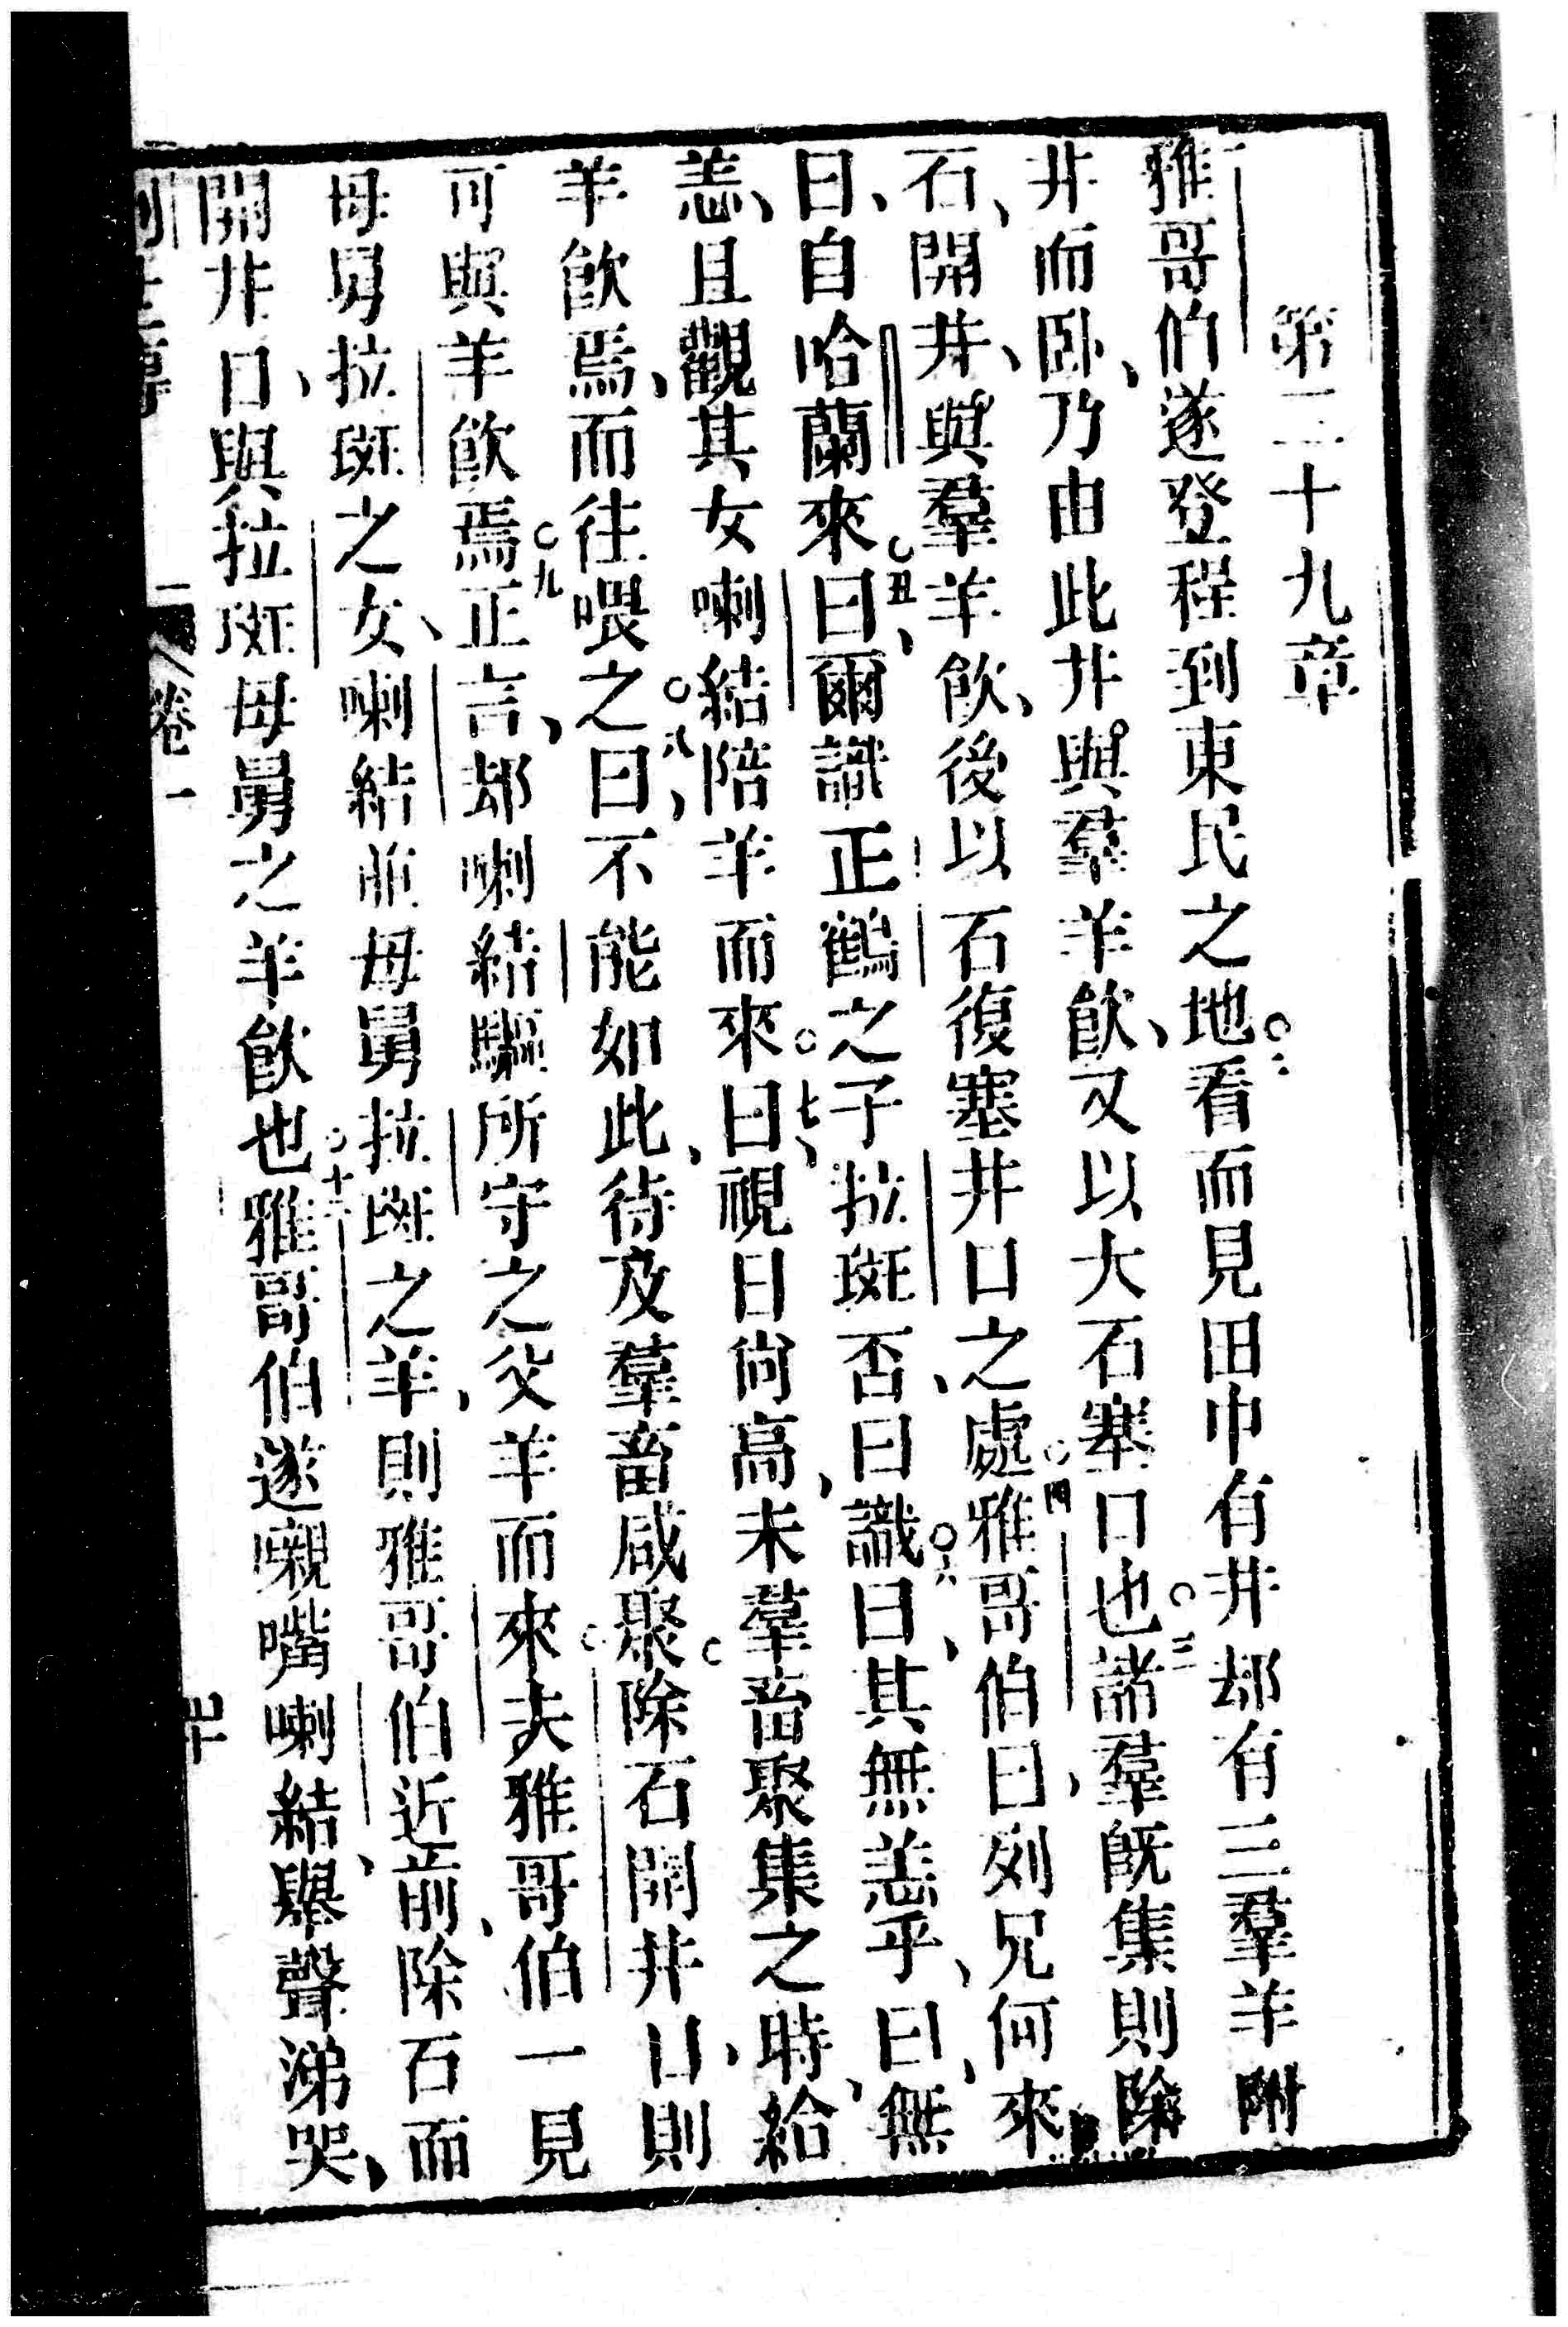 第二十九章
雅哥伯遂登程到東民之地○二看而見田中有井却有三羣羊附
井而臥、乃由此井與羣羊飲、又以大石塞口也○三諸羣既集則除
石、開井、與羣羊飲、後以石復塞井口之處○四雅哥伯曰、列兄何來
曰、自哈蘭來○五曰、爾識正鶴之子拉斑否、曰識○六曰、其無恙乎、曰、無
恙、且觀其女喇結陪羊而來○七曰、視日尚高、未羣畜聚集之時、給
羊飲焉、而往喂之○八曰、不能如此、待及羣畜咸聚○除石開井口、則
可與羊飲焉○九正言、却喇結驅所守之父羊而來○夫雅哥伯一見
母舅拉斑之女、喇結並母舅拉斑之羊、則雅哥伯近前、除石而
開井口、與拉斑母舅之羊飲也○十一雅哥伯遂嚫嘴喇結、舉聲涕哭、
卷一